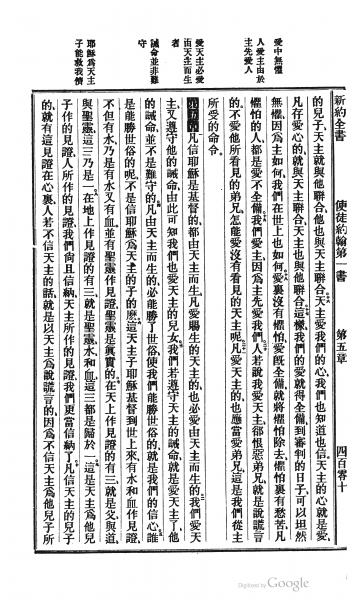 新約全書　使徒約翰第一書　第五章　四百零十
愛中無懼
人愛主由於
主先愛人
愛天主必愛
由天主而生
者
誡命並非難
守
耶穌爲天主
子能救我儕
的兒子、天主就與他聯合、他也與天主聯合、天主愛我們的心、我們也知道也信、天主的心就是愛、
凡存愛心的、就與天主聯合、天主也與他聯合。這樣、我們的愛就得全備、到審判的日子、可以坦然
無懼、因爲主如何、我們在世上也如何。愛裏沒有懼怕、愛旣全備、就將懼怕除去、懼怕裏有愁苦、凡
懼怕的人、都是愛不全備、我們愛主、因爲主先愛我們、人若說我愛天主、卻恨惡弟兄、就是說謊言
的、不愛他所看見的弟兄、怎能愛沒有看見的天主呢、凡愛天主的、也應當愛弟兄、這是我們從主
所受的命令。
第五章凡信耶穌是基督的、都由天主而生、凡愛賜生的天主的、也必愛由天主而生的、我們愛天
主、又遵守他的誡命、由此可知我們也愛天主的兒女、我們若遵守天主的誡命、就是愛天主了、他
的誡命、並不是難守的、凡由天主而生的、必能勝了世俗、使我們能勝世俗的、就是我們的信心、誰
是能勝世俗的呢、不是信耶穌爲天主的子的麽。這天主子耶穌基督到世上來、有水和血作見證、
不但有水、乃是有水又有血、並有聖靈作見證、聖靈是眞實的。在天上作見證的有三、就是父與道
與聖靈、這三乃是一。在地上作見證的有三、就是聖靈、水和血、這三都是歸於一。這是天主爲他兒
子作的見證、人所作的見證、我們尙且信納、天主所作的見證、我們更當信納了、凡信天主的兒子
的、就有這見證在心裏、人若不信天主的話、就是以天主爲說謊言的、因爲不信天主爲他兒子所
Digitized by Google